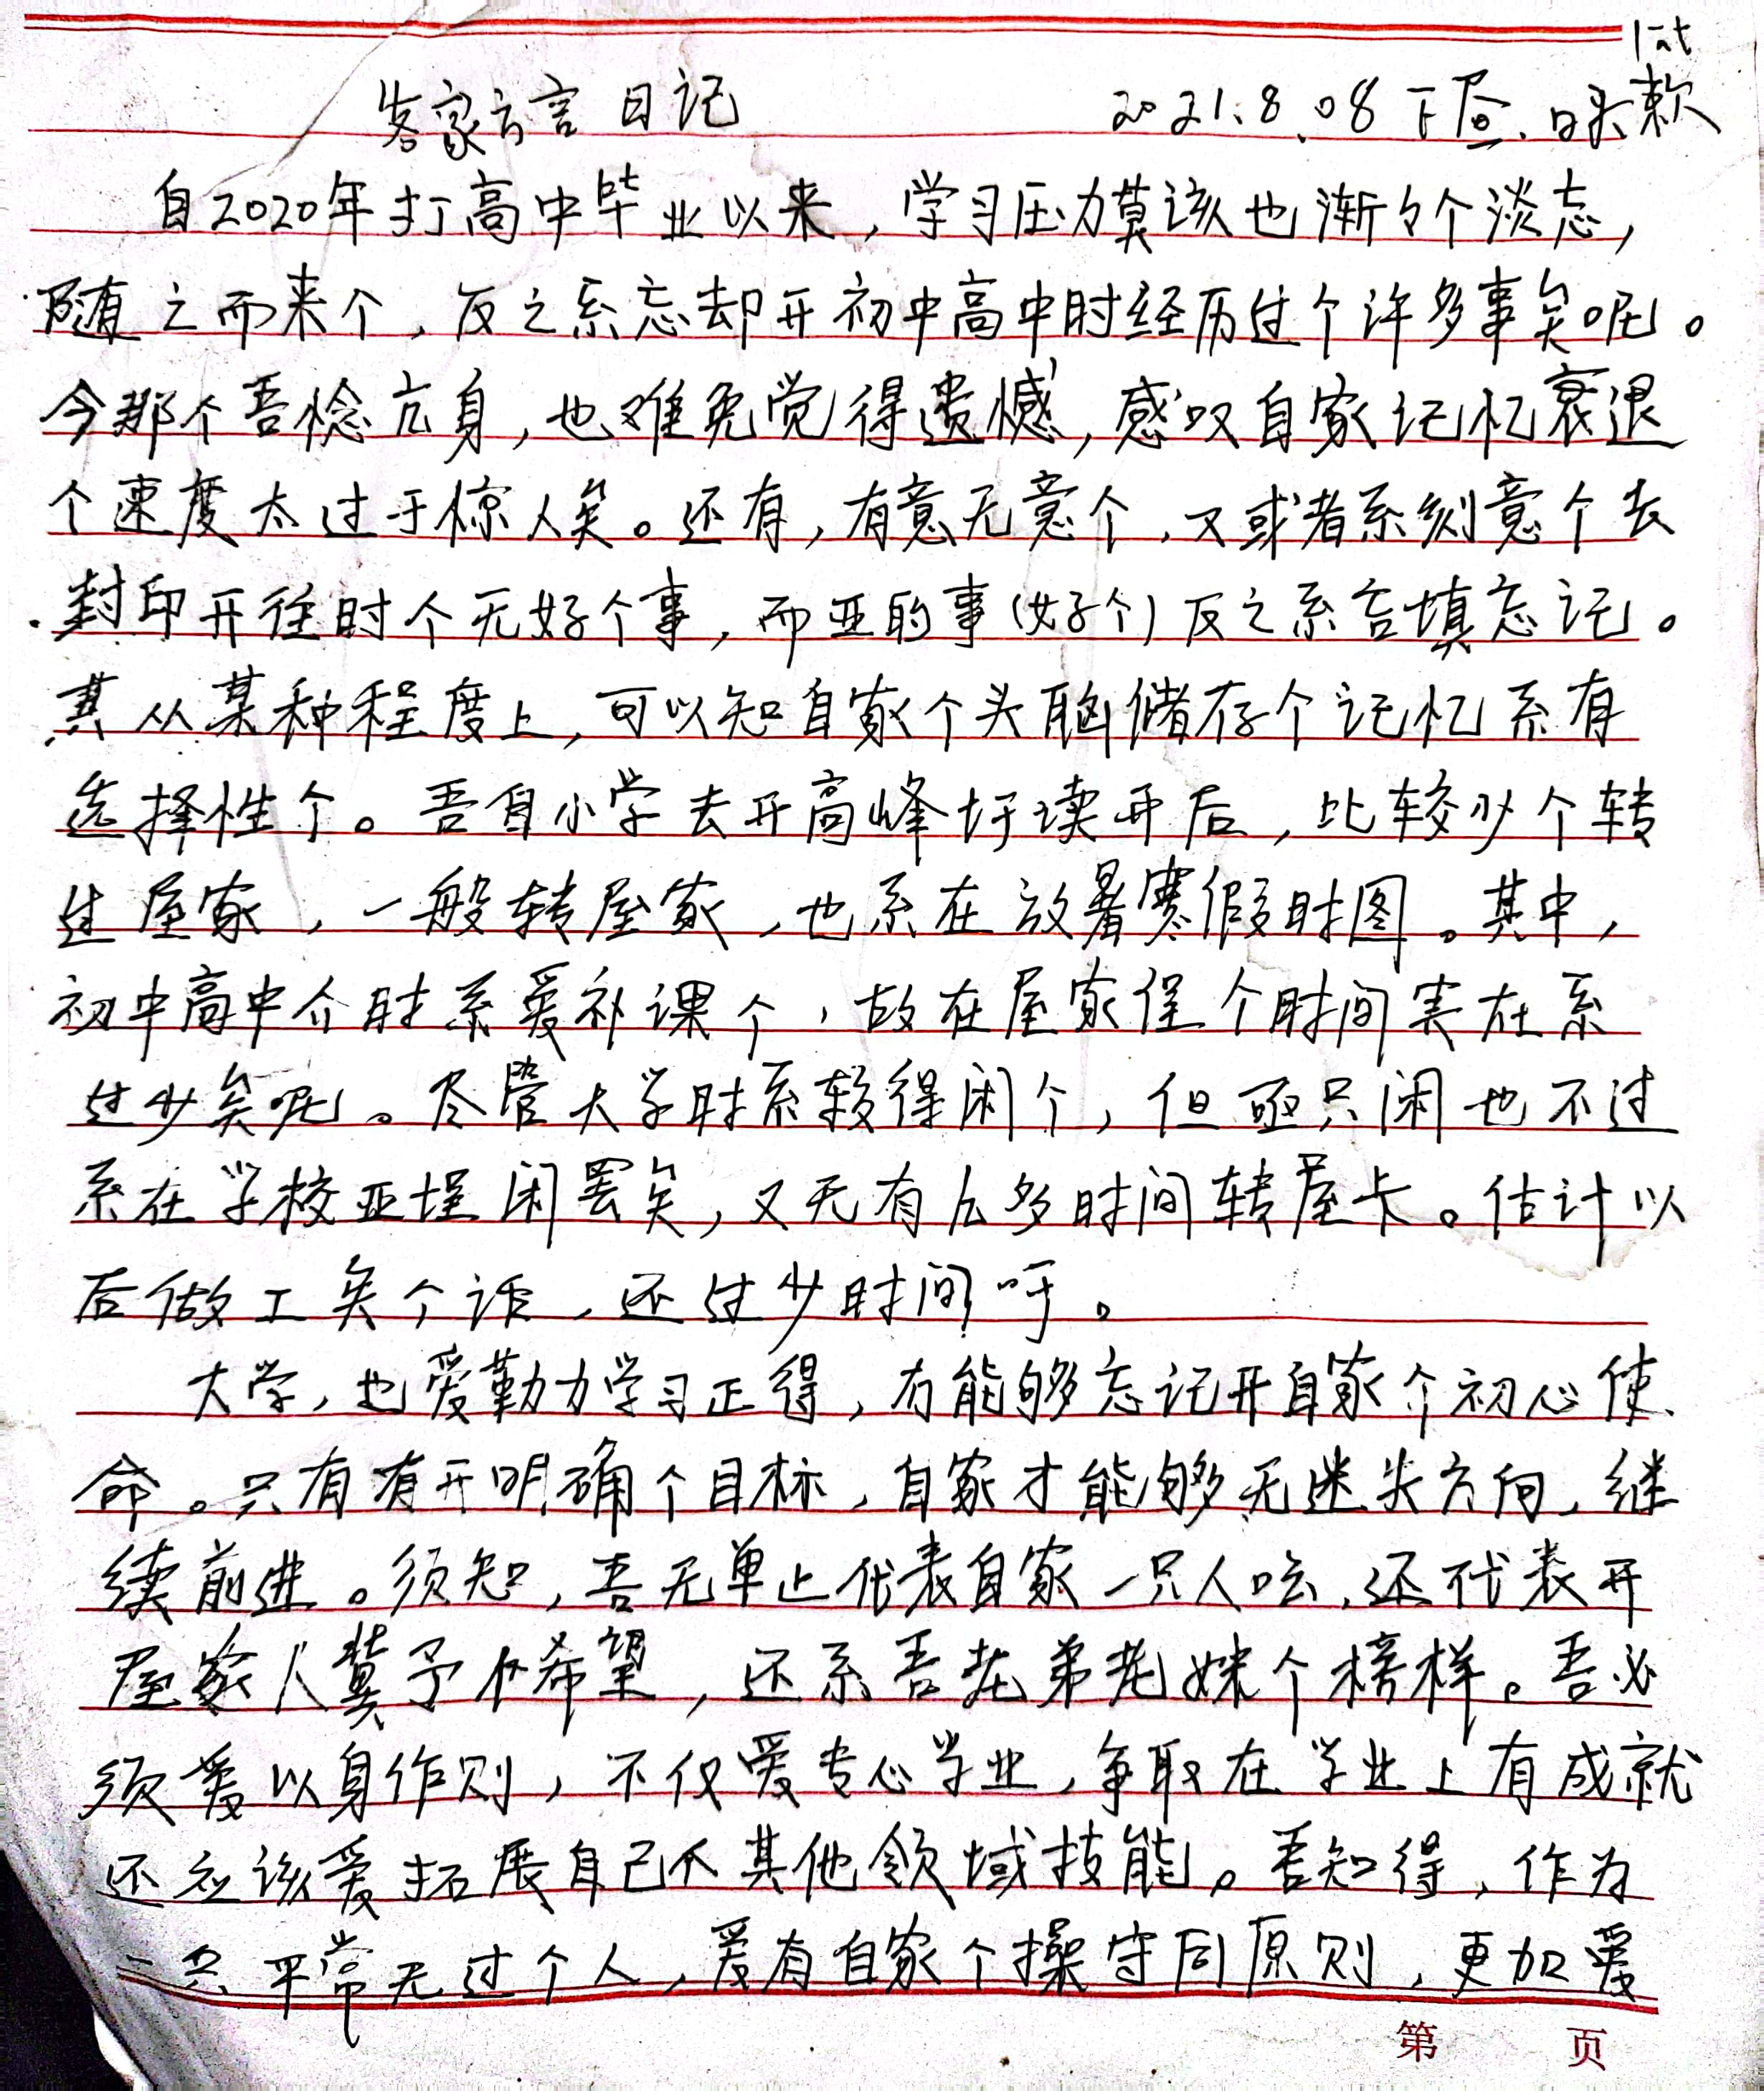 1st
客家方言 日记 2021.8.08 下昼.
自2020年打高中毕业以来,学习压力莫该也渐々个淡忘,
随之而来个,反之系忘却开初中高中时经历过个许多事矣呢。
今那个吾惗亢身,也难免觉得遗憾,感叹自家记忆衰退
个速度太过于惊人矣。还有,有意无意个,又或者系刻意个去
封印开往时个无好个事,而亚的事(好个)反之系填忘记。
其从某种程度上,可以知自家个头脑储存个记忆系有
选择性个。吾自小学去开高峰圩读开后,比较少个转
过屋家,一般转屋家,也系在放暑寒假时图。其中,
初中高中介时系爱补课个,故在屋家个时间实在系
过少矣呢。尽管大学时系较得闲个,但亟只闲也不过
系在学校亚埕闲罢矣,又无有几多时间转屋卡。估计以
后做工矣个话,还过少时间吁。
大学,也爱勤力学习正得,冇能够忘记开自家个初心使
命。只有有开明确个目标,自家才能够无迷失方向,继
续前进。须知,吾无单止代表自家一只人吆,还代表开
屋家人冀予个希望,还系吾老弟老妹个榜样。吾必
须爱以身作则,不仅爱专心学业,争取在学业上有成就
还应该爱拓展自己个其他领域技能。吾知得,作为
一只平常无过个人,爱有自家个操守同原则,更加爱
第 页